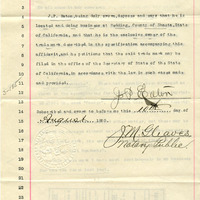 J.P. Eaton, being duly sworn, deposes and says that he is
located and doing business at Redding, County of Shasta, State
of California, and that he is the exclusive owner of the
trade mark described in the specification accompanying this
affidavit, and he petitions that the said trade mark may be
filed in the office of the Secretary of State of the State
of California, in accordance with the law in such cases made
and provided.
J.P. Eaton
Subscribed and sworn to before me this 10th day of
August 189
J.M. Gleaves
Notary Public